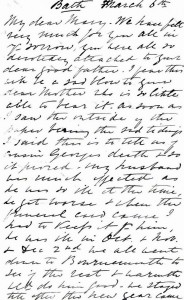 Bath March 6th
My dear Mary. We have felt
very much for you all in
sorrow, you were all so
devotedly attached to your
dear good father. I fear this
will be a sad blow to your
dear Mother she is so little
able to bear it. as soon as
I saw the outside of the
paper the sad tidings
I said this is to tell us of
cousin Georges death & so
it proved. My husband
was much affected as
he was so ill at the time,
he got worse & when the
funeral card came I
had to keep it from
him. He was ill in Oct & Nov
& Dec 2nd we all went
down to Bournemouth to
see if the rest & warmth
would do him good. We stayed
till after the new year came